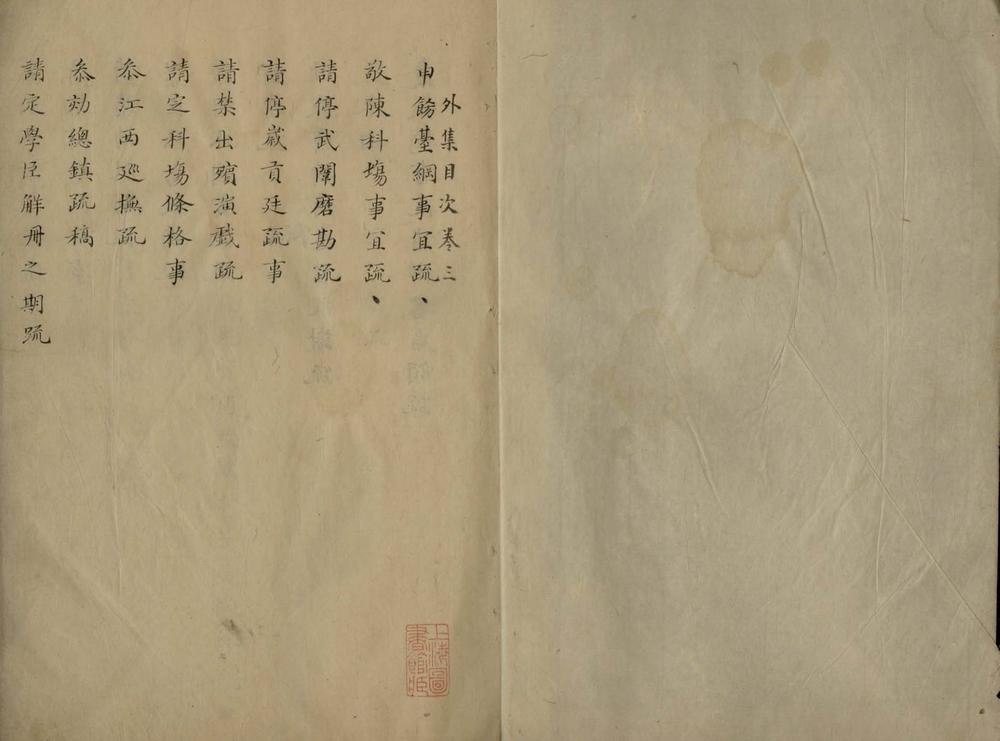 外集目次卷三
申飭臺綱事宜疏、
敬陳科塲事宜疏、
請停武闈磨勘疏
請停嵗貢廷疏事
請禁出殯演戲疏
請定科塲條格事
叅江西廵撫疏
叅劾總鎮疏稿
請定學臣觧冊之期疏
上海圖書館藏